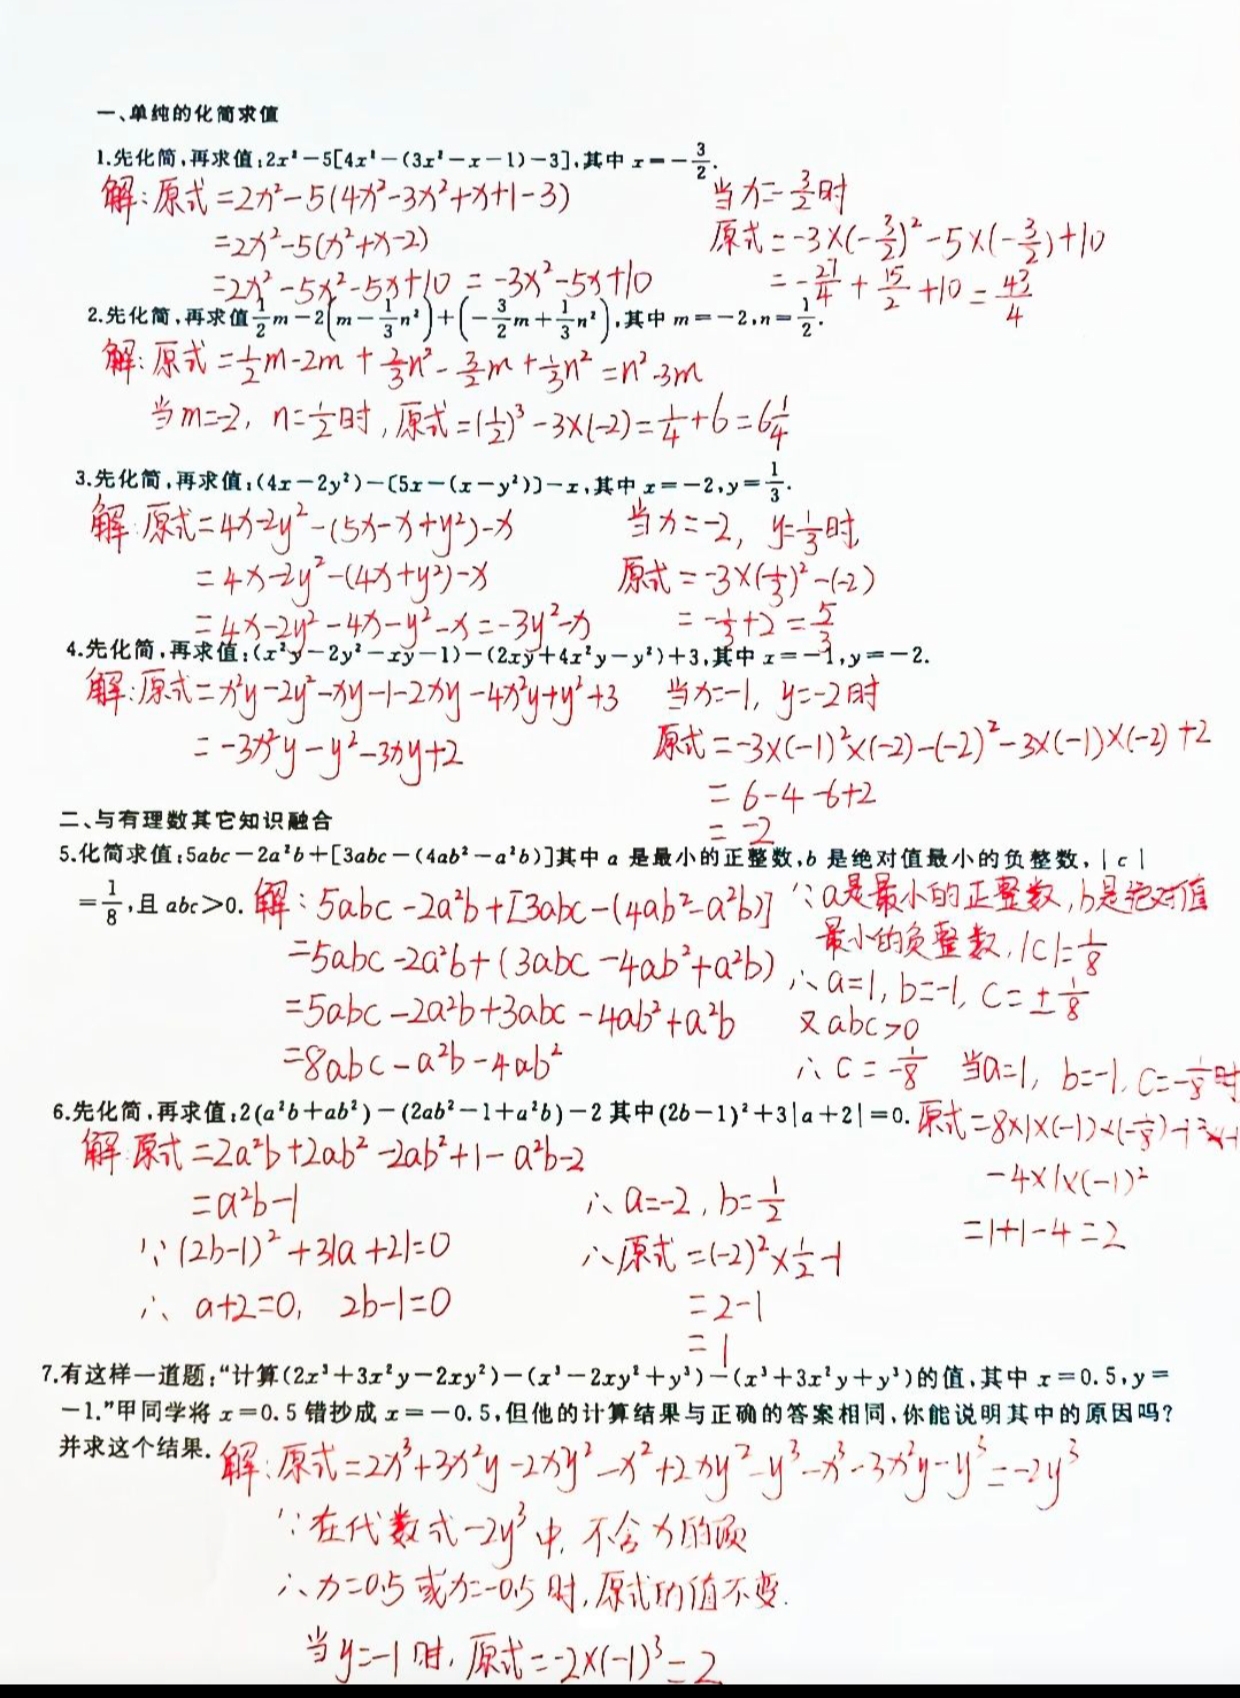 一、单纯的化简求值
1.先化简,再求值:2x²-5[4x²-(3x²-x-1)-3],其中 x=-3/2.
解:原式=2x²-5(4x²-3x²+x+1-3)
=2x²-5(x²+x-2)
=2x²-5x²-5x+10 = -3x²-5x+10
当x=-3/2时
原式=-3×(-3/2)²-5×(-3/2)+10
=-27/4+15/2+10=43/4
2.先化简,再求值 1/2m-2(m-1/3n²)+(-3/2m+1/3n²),其中 m=-2,n=1/2.
解:原式=1/2m-2m+2/3n²-3/2m+1/3n²=n²-3m
当m=-2, n=1/2时,原式=(1/2)³-3×(-2)=1/4+6=6 1/4
3.先化简,再求值:(4x-2y²)-[5x-(x-y²)]-x,其中 x=-2,y=1/3.
解:原式=4x-2y²-(5x-x+y²)-x
=4x-2y²-(4x+y²)-x
=4x-2y²-4x-y²-x=-3y²-x
当x=-2, y=1/3时,
原式=-3×(1/3)²-(-2)
=-1/3+2=5/3
4.先化简,再求值:(x²y-2y²-xy-1)-(2xy+4x²y-y²)+3,其中 x=-1,y=-2.
解:原式=x²y-2y²-xy-1-2xy-4x²y+y²+3
=-3x²y-y²-3xy+2
当x=-1, y=-2时
原式=-3×(-1)²×(-2)-(-2)²-3×(-1)×(-2)+2
=6-4-6+2
=-2
二、与有理数其它知识融合
5.化简求值:5abc-2a²b+[3abc-(4ab²-a²b)]其中 a 是最小的正整数,b 是绝对值最小的负整数,|c|
=1/8,且 abc>0.
解:5abc-2a²b+[3abc-(4ab²-a²b)]
=5abc-2a²b+(3abc-4ab²+a²b)
=5abc-2a²b+3abc-4ab²+a²b
=8abc-a²b-4ab²
∵a是最小的正整数,b是绝对值
最小的负整数,|c|=1/8
∴a=1, b=-1, c=±1/8
又abc>0
∴c=-1/8 当a=1, b=-1, c=-1/8时
原式=8×1×(-1)×(-1/8)-1²×(-1
-4×1×(-1)²
=1+1-4=2
6.先化简,再求值:2(a²b+ab²)-(2ab²-1+a²b)-2 其中(2b-1)²+3|a+2|=0.
解:原式=2a²b+2ab²-2ab²+1-a²b-2
=a²b-1
∵(2b-1)²+3|a+2|=0
∴a+2=0, 2b-1=0
∴a=-2, b=1/2
∴原式=(-2)²×1/2-1
=2-1
=1
7.有这样一道题:“计算(2x³+3x²y-2xy²)-(x³-2xy²+y³)-(x³+3x²y+y³)的值,其中 x=0.5,y=
-1.”甲同学将 x=0.5 错抄成 x=-0.5,但他的计算结果与正确的答案相同,你能说明其中的原因吗?
并求这个结果.
解:原式=2x³+3x²y-2xy²-x²+2xy²-y³-x³-3x²y-y³=-2y³
∵在代数式-2y³中,不含x的项
∴x=0.5或x=-0.5时,原式的值不变.
当y=-1时,原式=-2×(-1)³=2